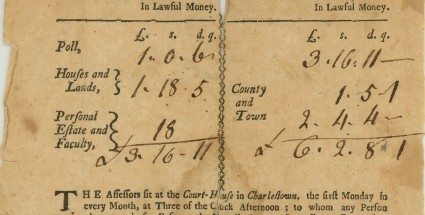 In Lawful Money. In Lawful Money.
£. s. d. q. £. s. d. q.
Poll, 1 . 0 . 6 3 . 16 . 11 —
Houses and
Lands, 1 . 18 . 5 County 1 . 5 1
and
Personal Town 2 . 4 . 4 —
Estate and 18
Faculty, £ 3 . 16 . 11 £ 6 . 2 . 8 1
THE Assessors sit at the Court-House in Charlestown, the first Monday in
every Month, at Three of the Clock Afternoon ; to whom any Person